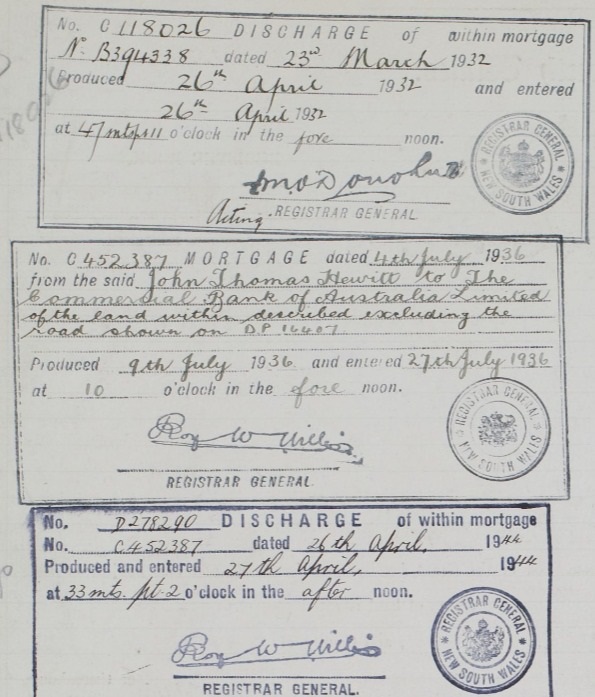 No. C 118026 DISCHARGE of within mortgage
No. B394338 dated 23rd March 1932
Produced 26th April 1932 and entered
26th April 1932
at 47 mts pt 11 o'clock in the fore noon.
Acting REGISTRAR GENERAL.
REGISTRAR GENERAL
NEW SOUTH WALES
No. C 452387 MORTGAGE dated 4th July 1936
from the said John Thomas Hewitt to The
Commercial Bank of Australia Limited
of the land within described excluding the
road shown on D.P. 16407
Produced 9th July 1936 and entered 27th July 1936
at 10 o'clock in the fore noon.
Roy W Willis
REGISTRAR GENERAL.
REGISTRAR GENERAL
NEW SOUTH WALES
No. D278290 DISCHARGE of within mortgage
No. C452387 dated 26th April, 1944
Produced and entered 27th April, 1944
at 33 mts. pt. 2 o'clock in the after noon.
Roy W Willis
REGISTRAR GENERAL.
REGISTRAR GENERAL
NEW SOUTH WALES